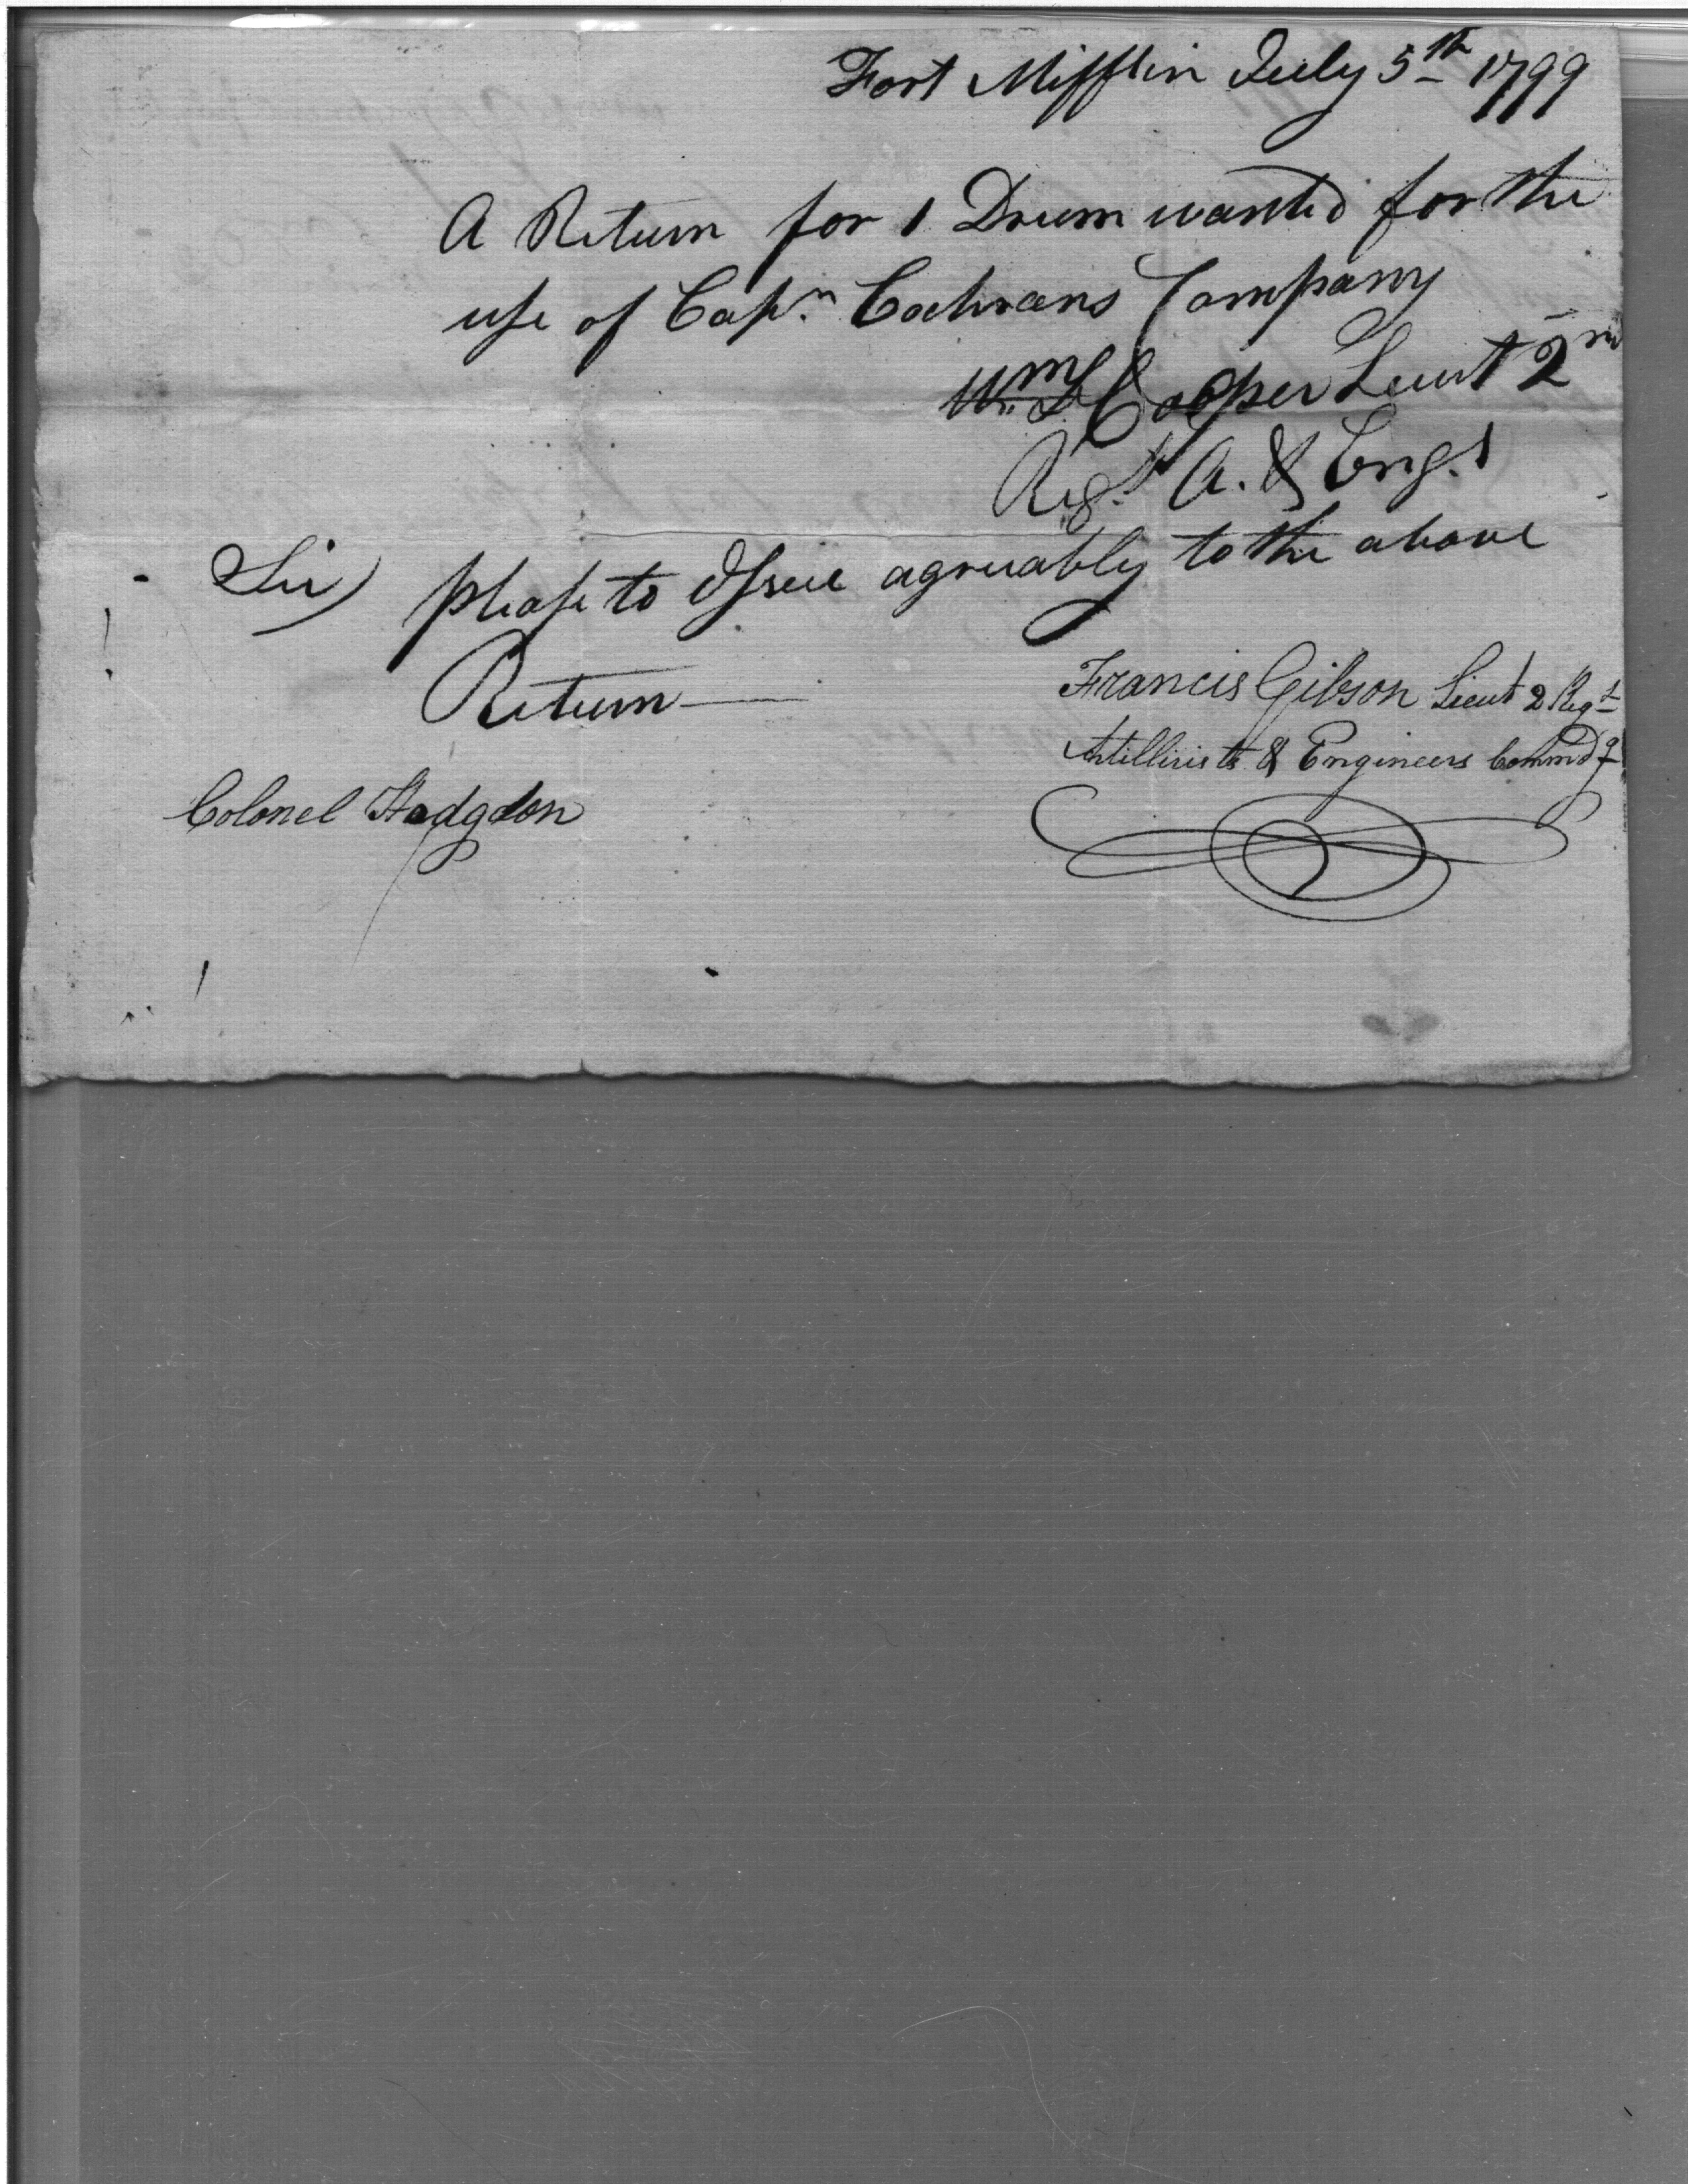 Fort Mifflin July 5th 1799
A Return for 1 Drum wanted for the
use of Capn. Cochrans Company
Wm. L Cooper Lieut 2nd
Regt. A. & Engs
Sir please to Issue agreeably to the above
Return
Francis Gibson Lieut 2 Regt
Artillirists & Engineers Commdg
Colonel Hodgdon